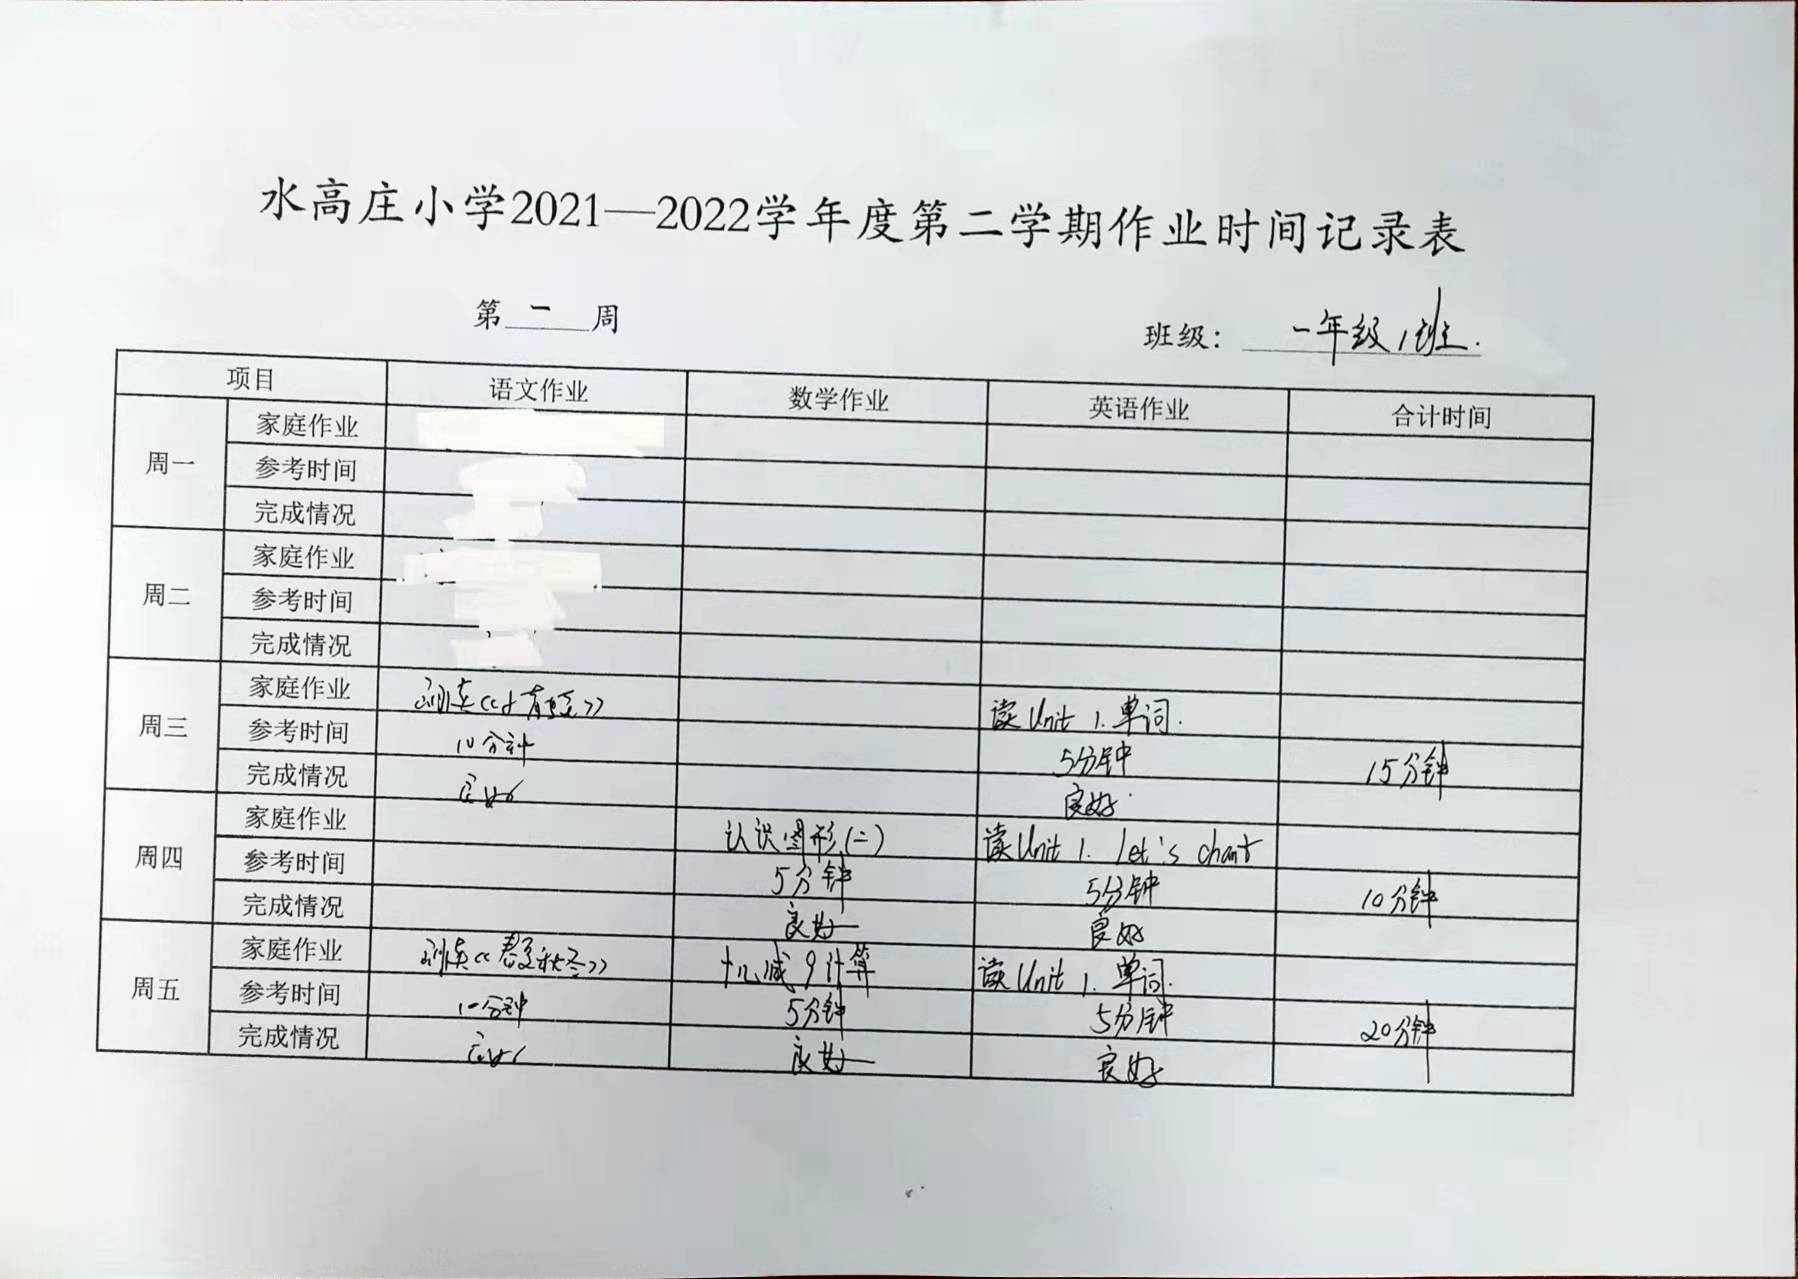 水高庄小学2021—2022学年度第二学期作业时间记录表
第一周 班级：一年级1班.
项目 语文作业 数学作业 英语作业 合计时间
周一
家庭作业
参考时间
完成情况
周二
家庭作业
参考时间
完成情况
周三
家庭作业 读Unit 1.单词.
参考时间 10分钟 5分钟 15分钟
完成情况 良好
周四
家庭作业 认识图形(二) 读Unit 1. Let's chant
参考时间 5分钟 5分钟 10分钟
完成情况 良好 良好
周五
家庭作业 《春夏秋冬》 十几减9计算 读Unit 1.单词.
参考时间 10分钟 5分钟 5分钟 20分钟
完成情况 良好 良好